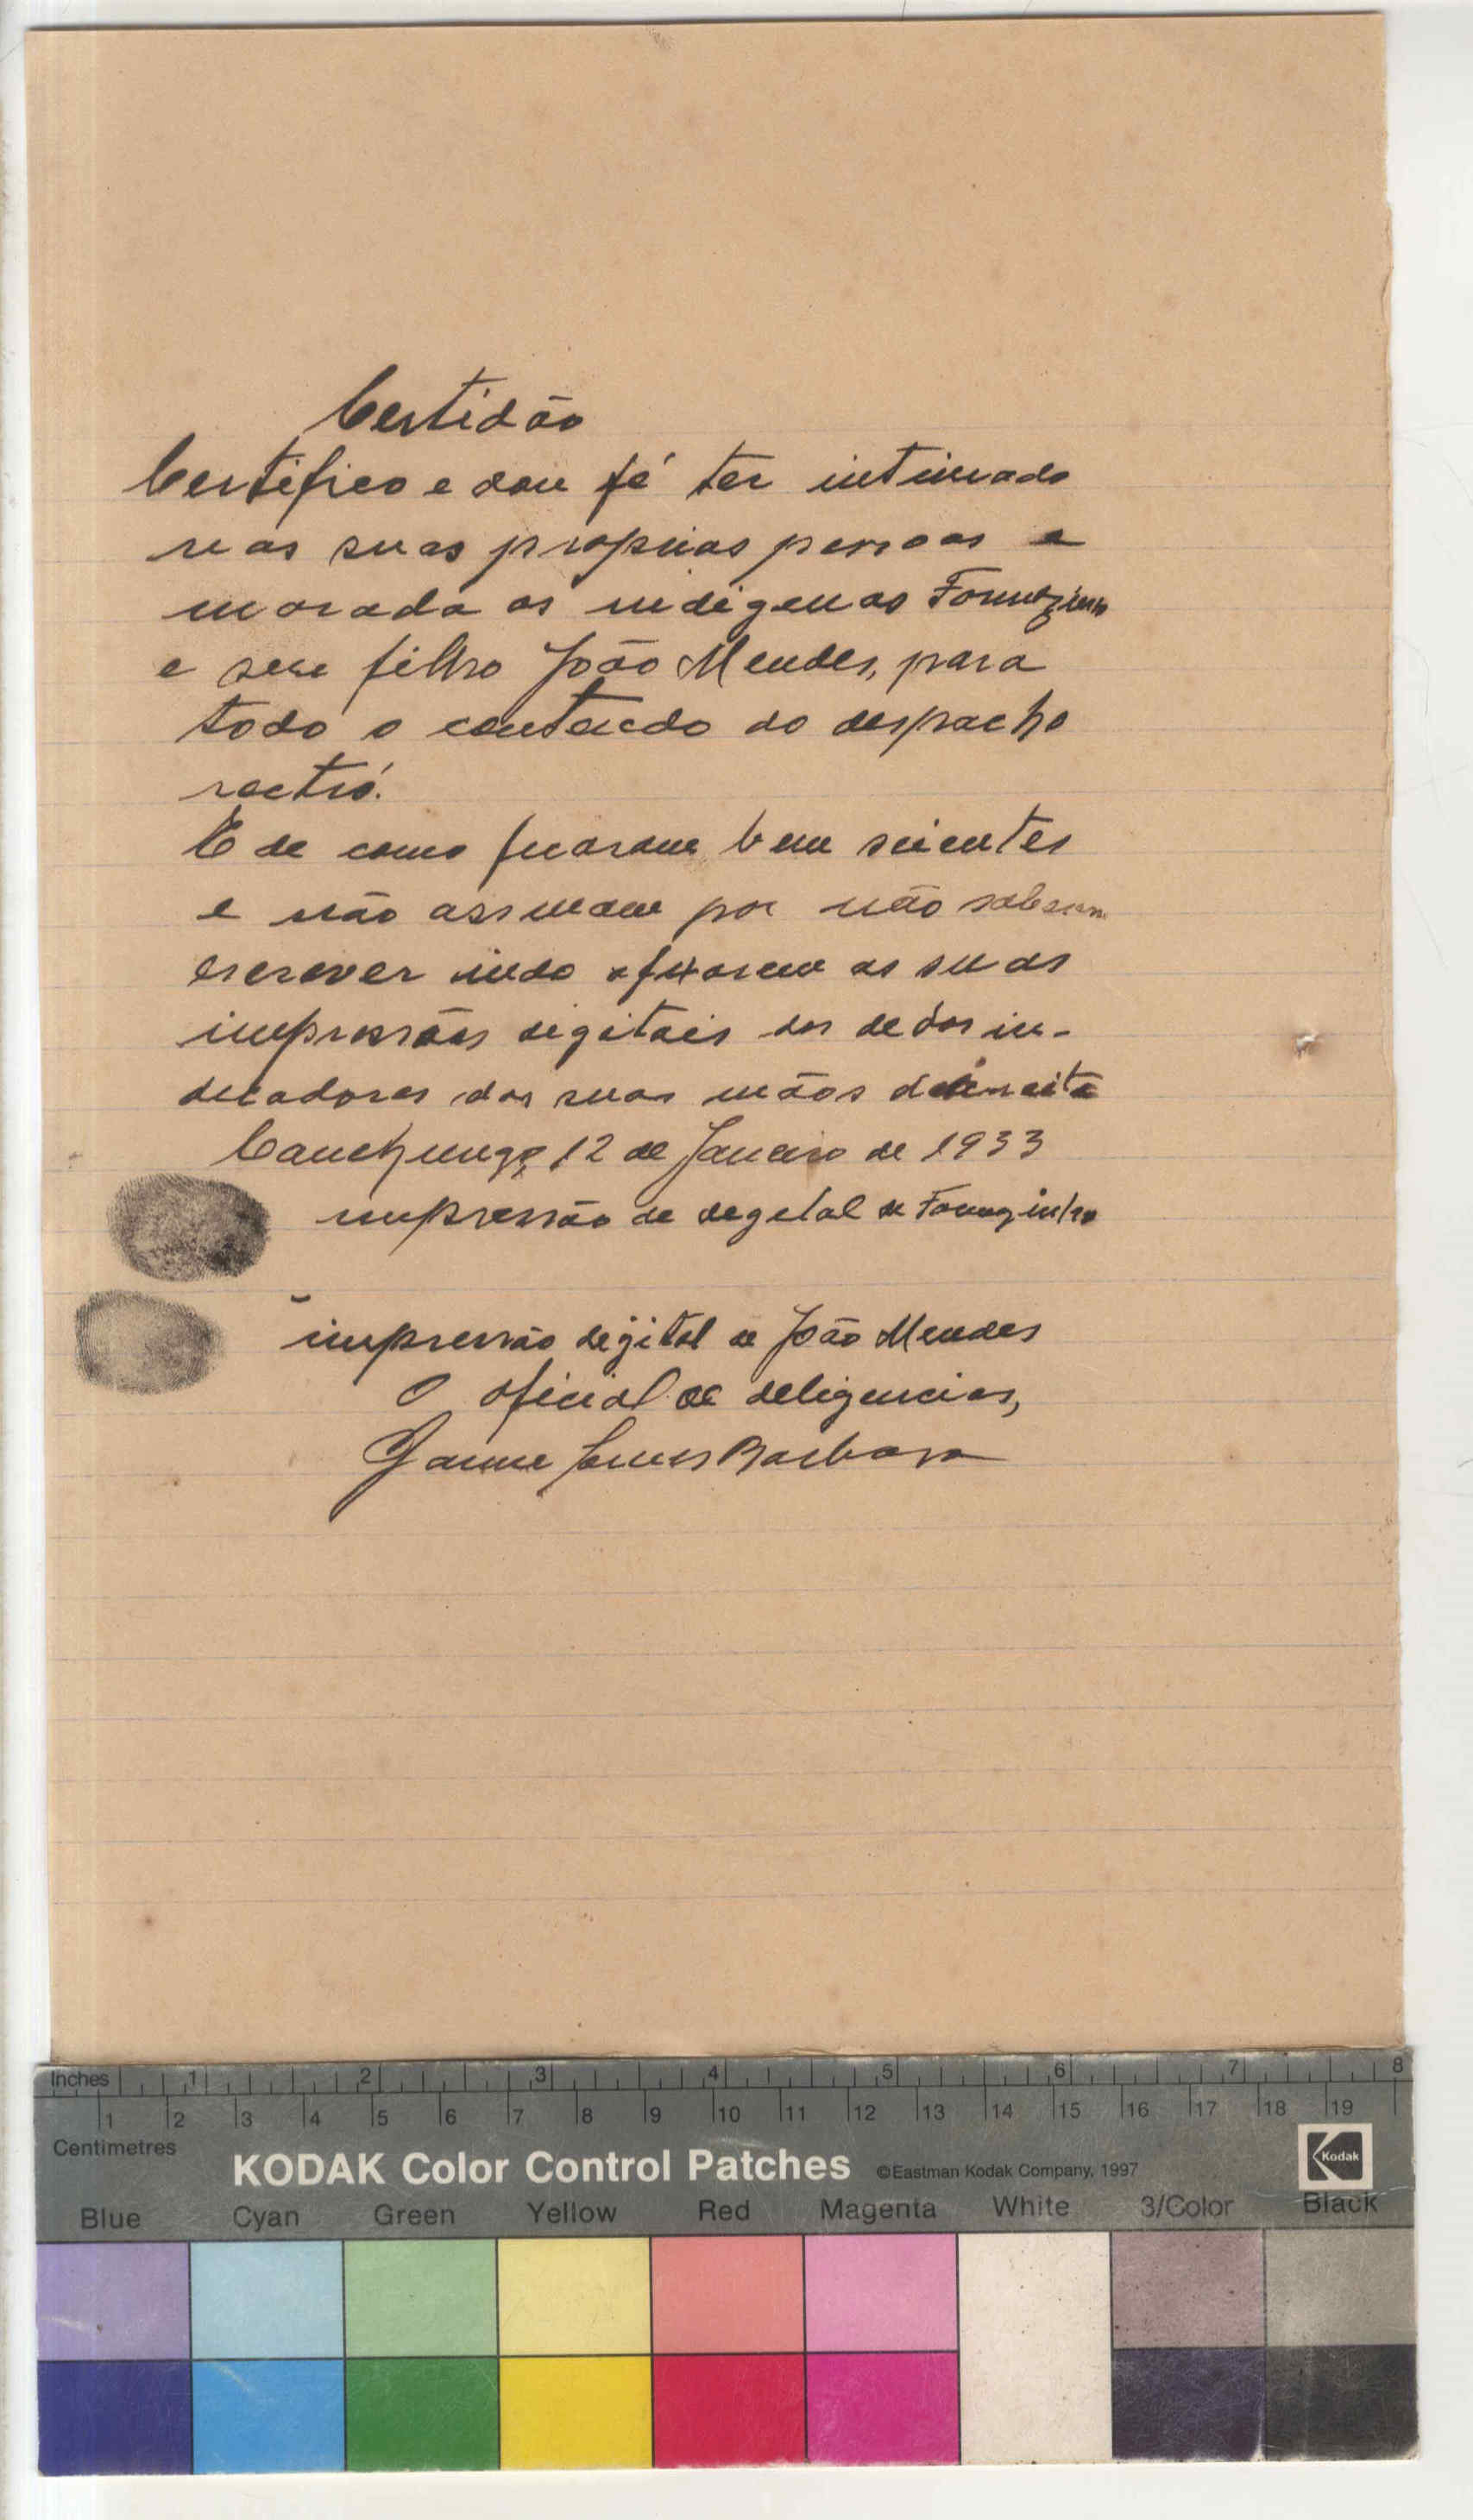 Certidão
Certifico e dou fé ter intimado
nas suas proprias pessoas e
morada os indigenas
e seu filho João Mendes, para
todo o conteudo do despacho
rectró.
E de como ficaram bem scientes
e não assinam por não saberem
escrever indo afixarem as suas
impressões digitais dos dedos in-
dicadores das suas mãos direita
Canchungo, 12 de Janeiro de 1933
impressão de degital de
impressão degital de João Mendes
O oficial de deligencias,
Jaime Barbosa
Inches 1 2 3 4 5 6 7 8
1 2 3 4 5 6 7 8 9 10 11 12 13 14 15 16 17 18 19
Centimetres
KODAK Color Control Patches ©Eastman Kodak Company, 1997 Kodak
Blue Cyan Green Yellow Red Magenta White 3/Color Black